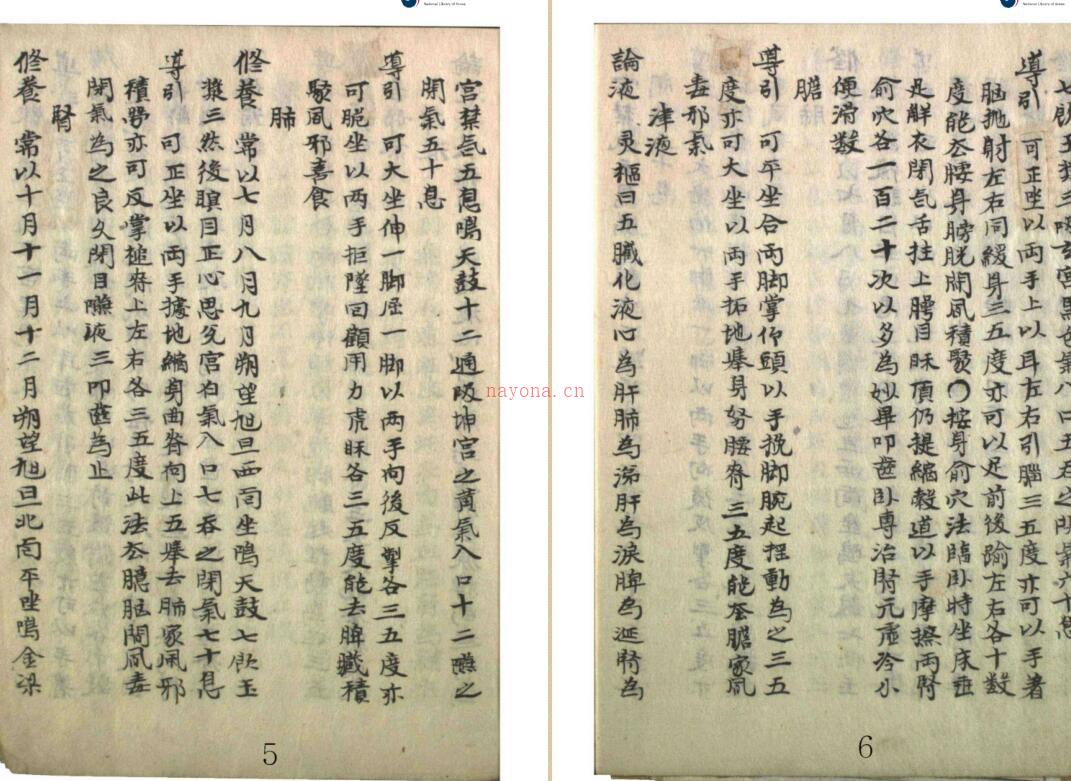 宮禁氣五息鳴天鼓十二通吸坤宮之黃氣入口十二嚥之
閉氣五十息
導引 可大坐伸一脚屈一脚以兩手向後反掣各三五度亦
可跪坐以兩手拒墜回顧用力虎眎各三五度能去脾臟積
聚風邪喜食
肺
修養 常以七月八月九月朔望旭旦西面坐鳴天鼓七飮玉
漿三然後瞑目正心思兌宮白氣入口七吞之閉氣七十息
導引 可正坐以兩手據地縮身曲脊向上五擧去肺家風邪
積勞亦可反掌搥脊上左右各三五度此法去臆胸間風毒
閉氣為之良久閉目嚥液三叩齒為止
腎
修養 常以十月十一月十二月朔望旭旦北面平坐鳴金梁
5
七飮玉漿三吸玄宮黑色氣入口五吞之閉氣六十息
導引 可正坐以兩手上以耳左右引腦三五度亦可以手著
腦抛射左右同緩身三五度亦可以足前後踰左右各十數
度能去腰身膀胱間風積聚○按身俞穴法臨臥時坐床垂
足解衣閉氣舌拄上腭目眎頂仍提縮穀道以手摩擦兩腎
俞穴各一百二十次以多為妙畢叩齒臥專治腎元虛冷小
便滑數
膽
導引 可平坐合兩脚掌仰頭以手挽脚腕起揺動為之三五
度亦可大坐以兩手拓地擧身努腰脊三五度能去膽家風
毒邪氣
津液
論液 灵樞曰五臟化液心為肝肺為涕肝為淚脾為涎腎為
6
nayona.cn